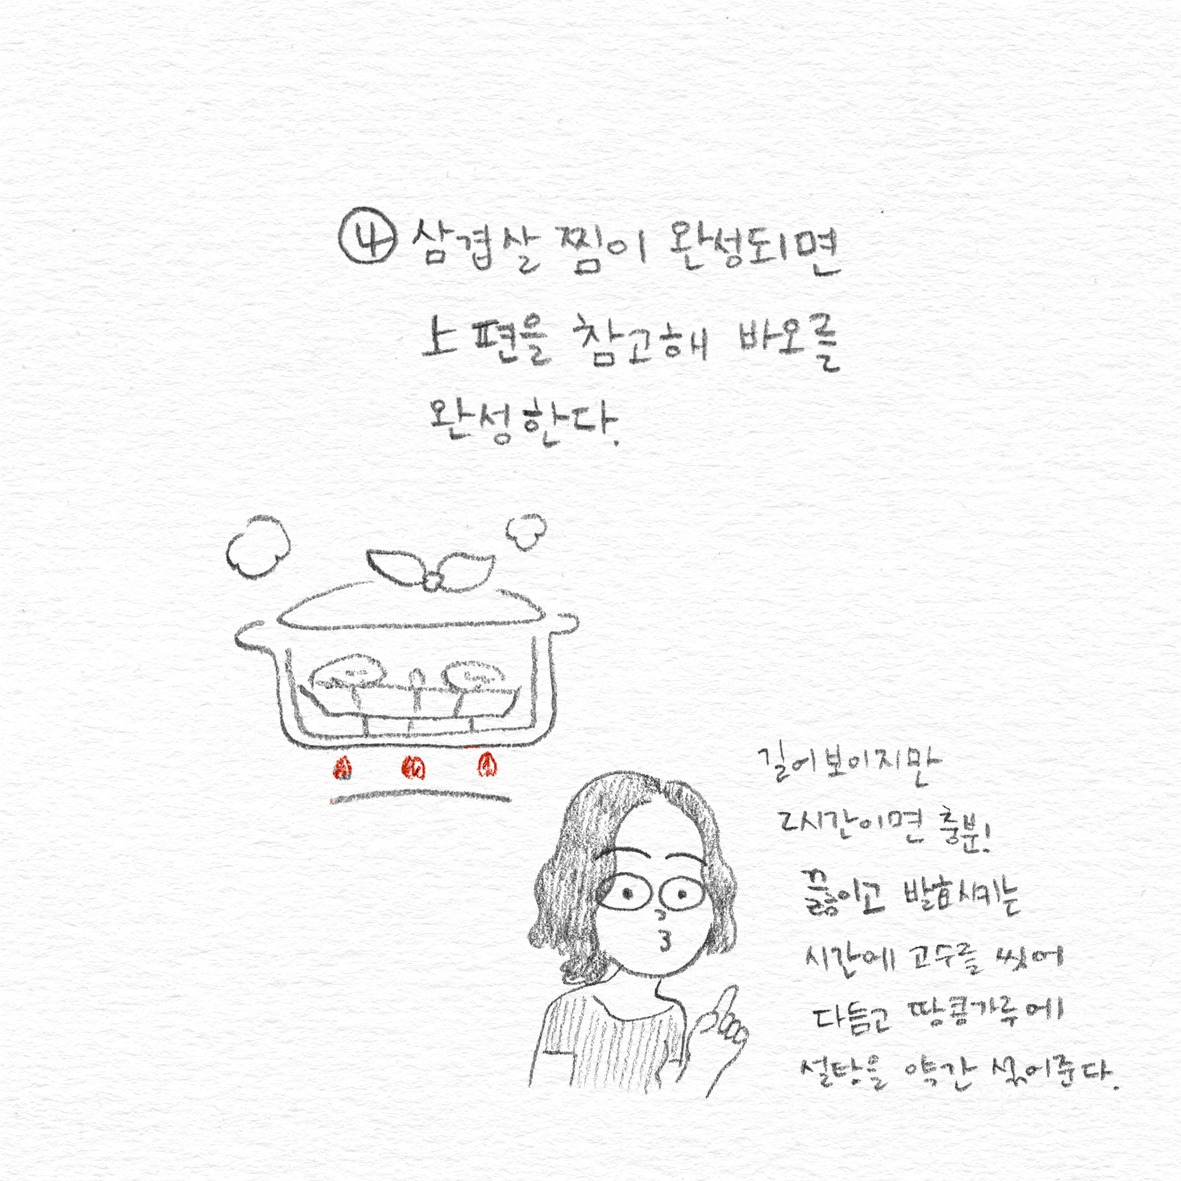 ④ 삼겹살 찜이 완성되면
上 편을 참고해 바오를
완성한다.
길어보이지만
2시간이면 충분!
끓이고 발효시키는
시간에 고수를 씻어
다듬고 땅콩가루에
설탕을 약간 섞어준다.